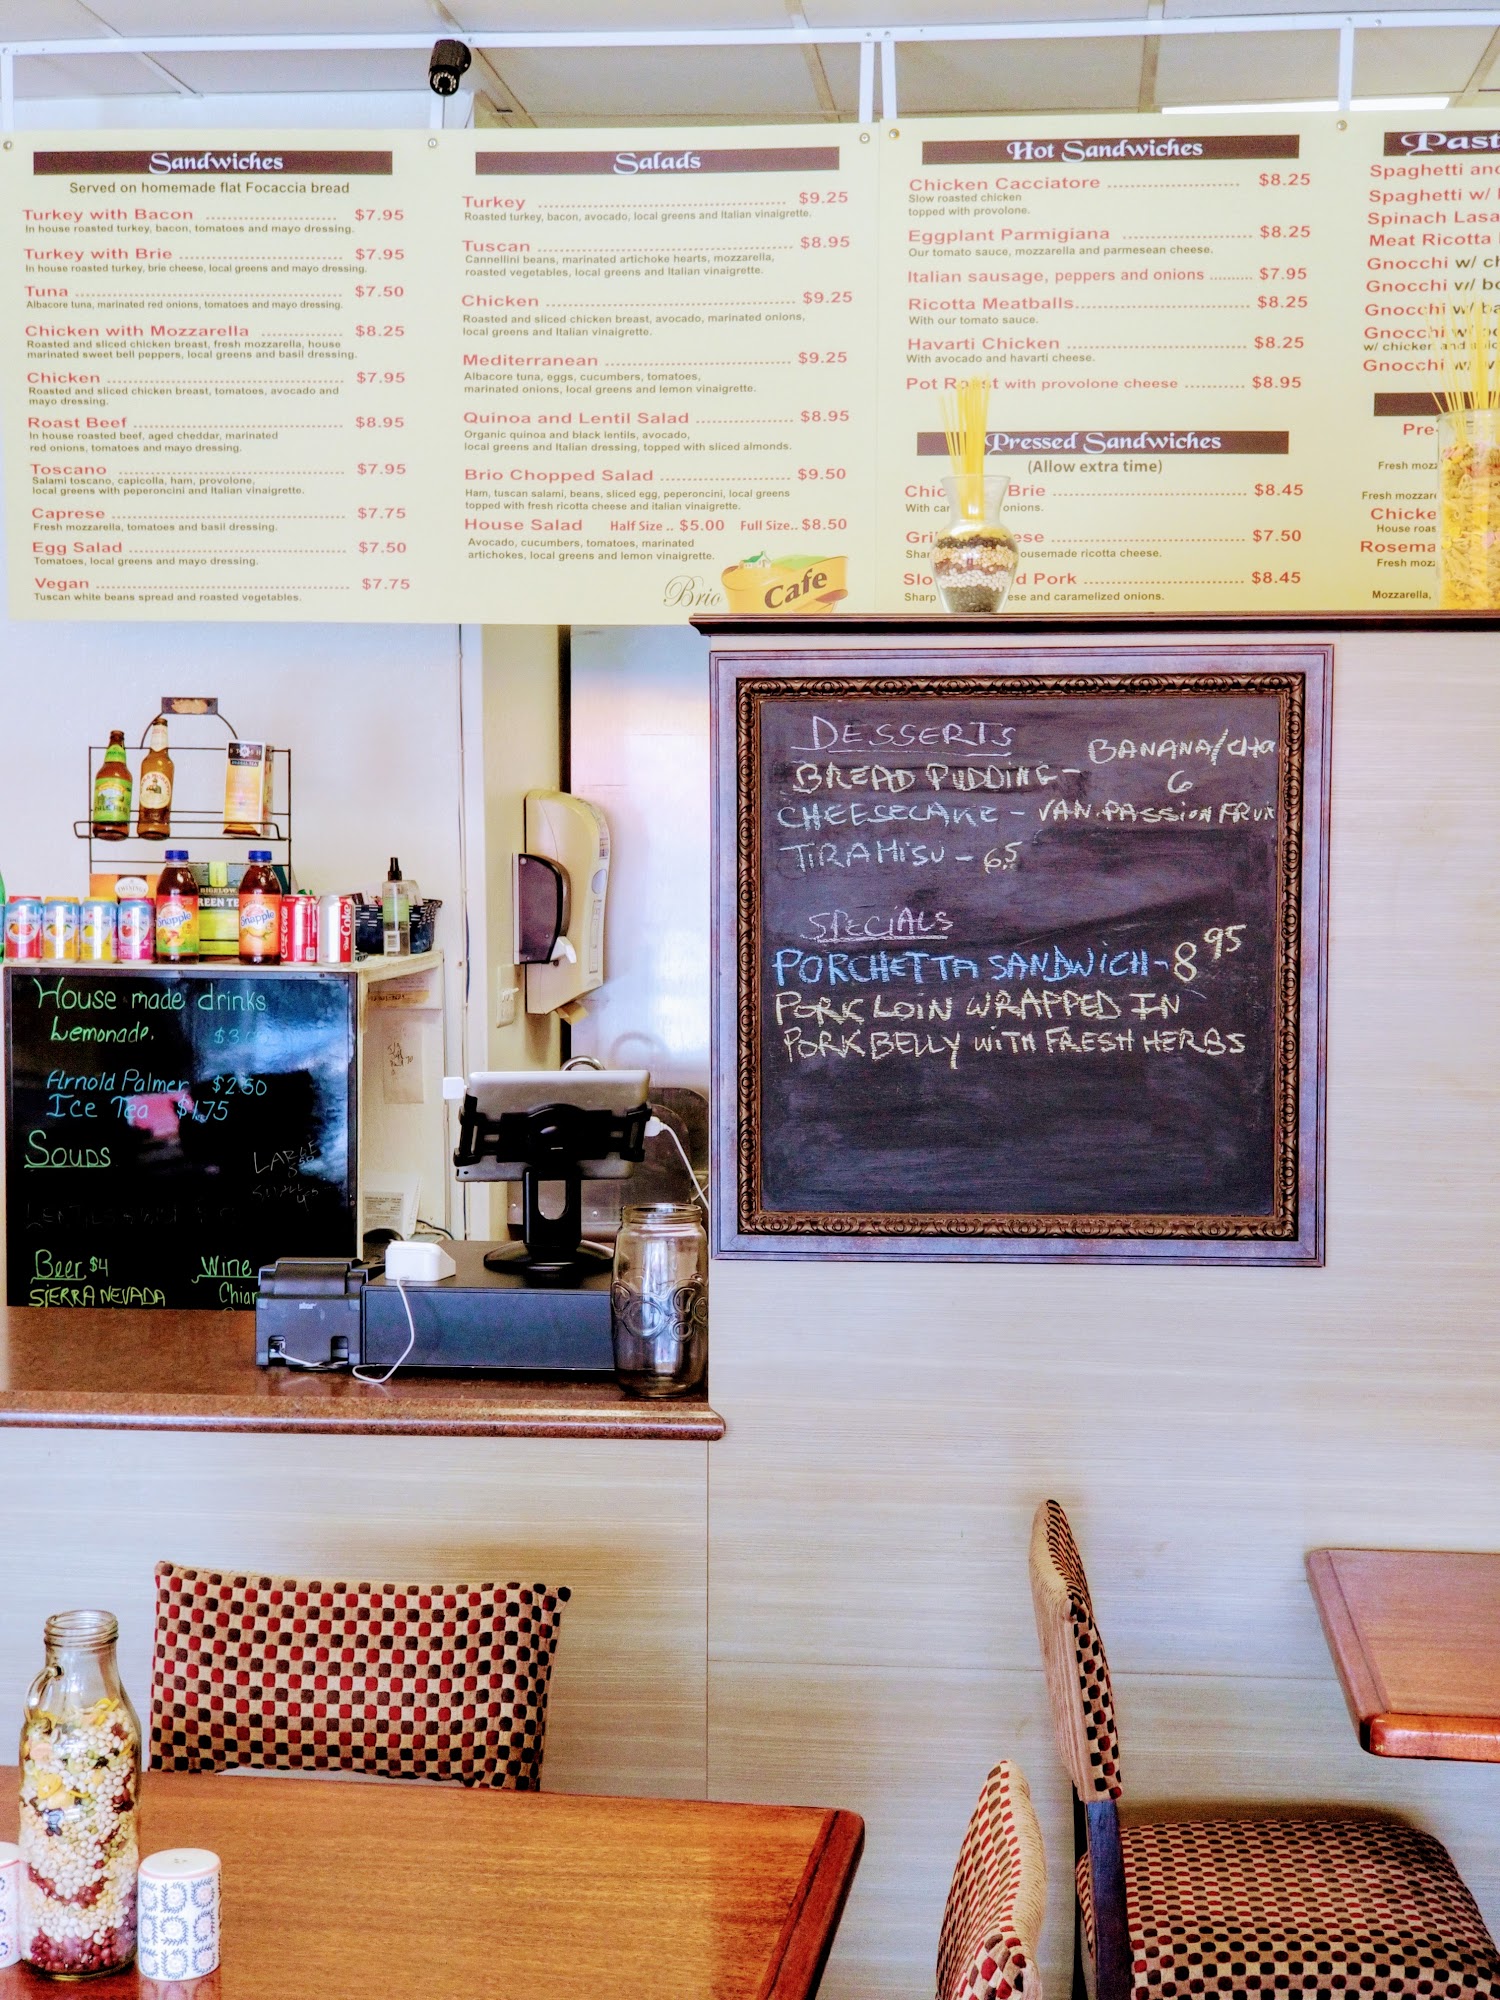 Sandwiches
Served on homemade flat Focaccia bread
Turkey with Bacon ........ $7.95
In house roasted turkey, bacon, tomatoes and mayo dressing.
Turkey with Brie ........ $7.95
In house roasted turkey, brie cheese, local greens and mayo dressing.
Tuna ........ $7.50
Albacore tuna, marinated red onions, tomatoes and mayo dressing.
Chicken with Mozzarella ........ $8.25
Roasted and sliced chicken breast, fresh mozzarella, house
marinated sweet bell peppers, local greens and basil dressing.
Chicken ........ $7.95
Roasted and sliced chicken breast, tomatoes, avocado and
mayo dressing.
Roast Beef ........ $8.95
In house roasted beef, aged cheddar, marinated
red onions, tomatoes and mayo dressing.
Toscano ........ $7.95
Salami toscano, capicolla, ham, provolone,
local greens with peperoncini and Italian vinaigrette.
Caprese ........ $7.75
Fresh mozzarella, tomatoes and basil dressing.
Egg Salad ........ $7.50
Tomatoes, local greens and mayo dressing.
Vegan ........ $7.75
Tuscan white beans spread and roasted vegetables.
Salads
Turkey ........ $9.25
Roasted turkey, bacon, avocado, local greens and Italian vinaigrette.
Tuscan ........ $8.95
Cannellini beans, marinated artichoke hearts, mozzarella,
roasted vegetables, local greens and Italian vinaigrette.
Chicken ........ $9.25
Roasted and sliced chicken breast, avocado, marinated onions,
local greens and Italian vinaigrette.
Mediterranean ........ $9.25
Albacore tuna, eggs, cucumbers, tomatoes,
marinated onions, local greens and lemon vinaigrette.
Quinoa and Lentil Salad ........ $8.95
Organic quinoa and black lentils, avocado,
local greens and Italian dressing, topped with sliced almonds.
Brio Chopped Salad ........ $9.50
Ham, tuscan salami, beans, sliced egg, peperoncini, local greens
topped with fresh ricotta cheese and italian vinaigrette.
House Salad Half Size .. $5.00 Full Size.. $8.50
Avocado, cucumbers, tomatoes, marinated
artichokes, local greens and lemon vinaigrette.
Brio Cafe
Hot Sandwiches
Chicken Cacciatore ........ $8.25
Slow roasted chicken
topped with provolone.
Eggplant Parmigiana ........ $8.25
Our tomato sauce, mozzarella and parmesean cheese.
Italian sausage, peppers and onions ........ $7.95
Ricotta Meatballs ........ $8.25
With our tomato sauce.
Havarti Chicken ........ $8.25
With avocado and havarti cheese.
Pot Roast with provolone cheese ........ $8.95
Pressed Sandwiches
(Allow extra time)
Brie ........ $8.45
With onions.
$7.50
housemade ricotta cheese.
Pork ........ $8.45
Sharp and caramelized onions.
Past
Spaghetti and
Spaghetti w/
Spinach Lasa
Meat Ricotta
Gnocchi w/ ch
Gnocchi w/ bo
Gnocchi w/ ba
Gnocchi
w/ chicken and
Gnocchi
Pre-
Fresh mozz
Fresh mozzare
Chicke
House roas
Rosema
Fresh moz
Mozzarella,
DESSERTS
BREAD PUDDING - BANANA/CHO
6
CHEESECAKE - VAN. PASSION FRUIT
TIRAMISU - 6.5
SPECIALS
PORCHETTA SANDWICH - 8 95
PORK LOIN WRAPPED IN
PORK BELLY WITH FRESH HERBS
TWININGS
BIGELOW
GREEN TE
Snapple
Snapple
Coca-Cola
Coke
House made drinks
Lemonade.
Arnold Palmer $2.50
Ice Tea $1.75
Soups
LARGE
SMALL
Beer $4
SIERRA NEVADA
Wine
Chian
star